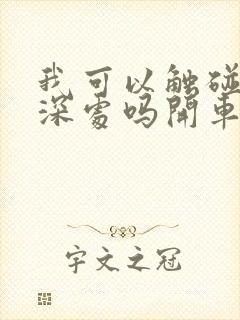 我可以触碰
深處吗開車
宇文之冠